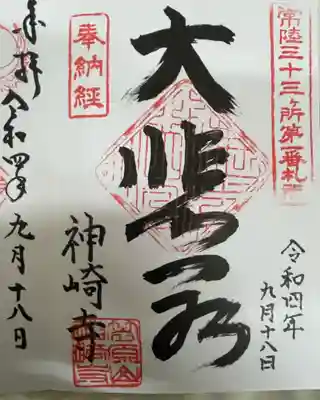 常陸三十三ヶ所第一番札所
令和四年
九月十八日
大悲殿
奉納経
神崎寺
奉拝
令和四年九月十八日